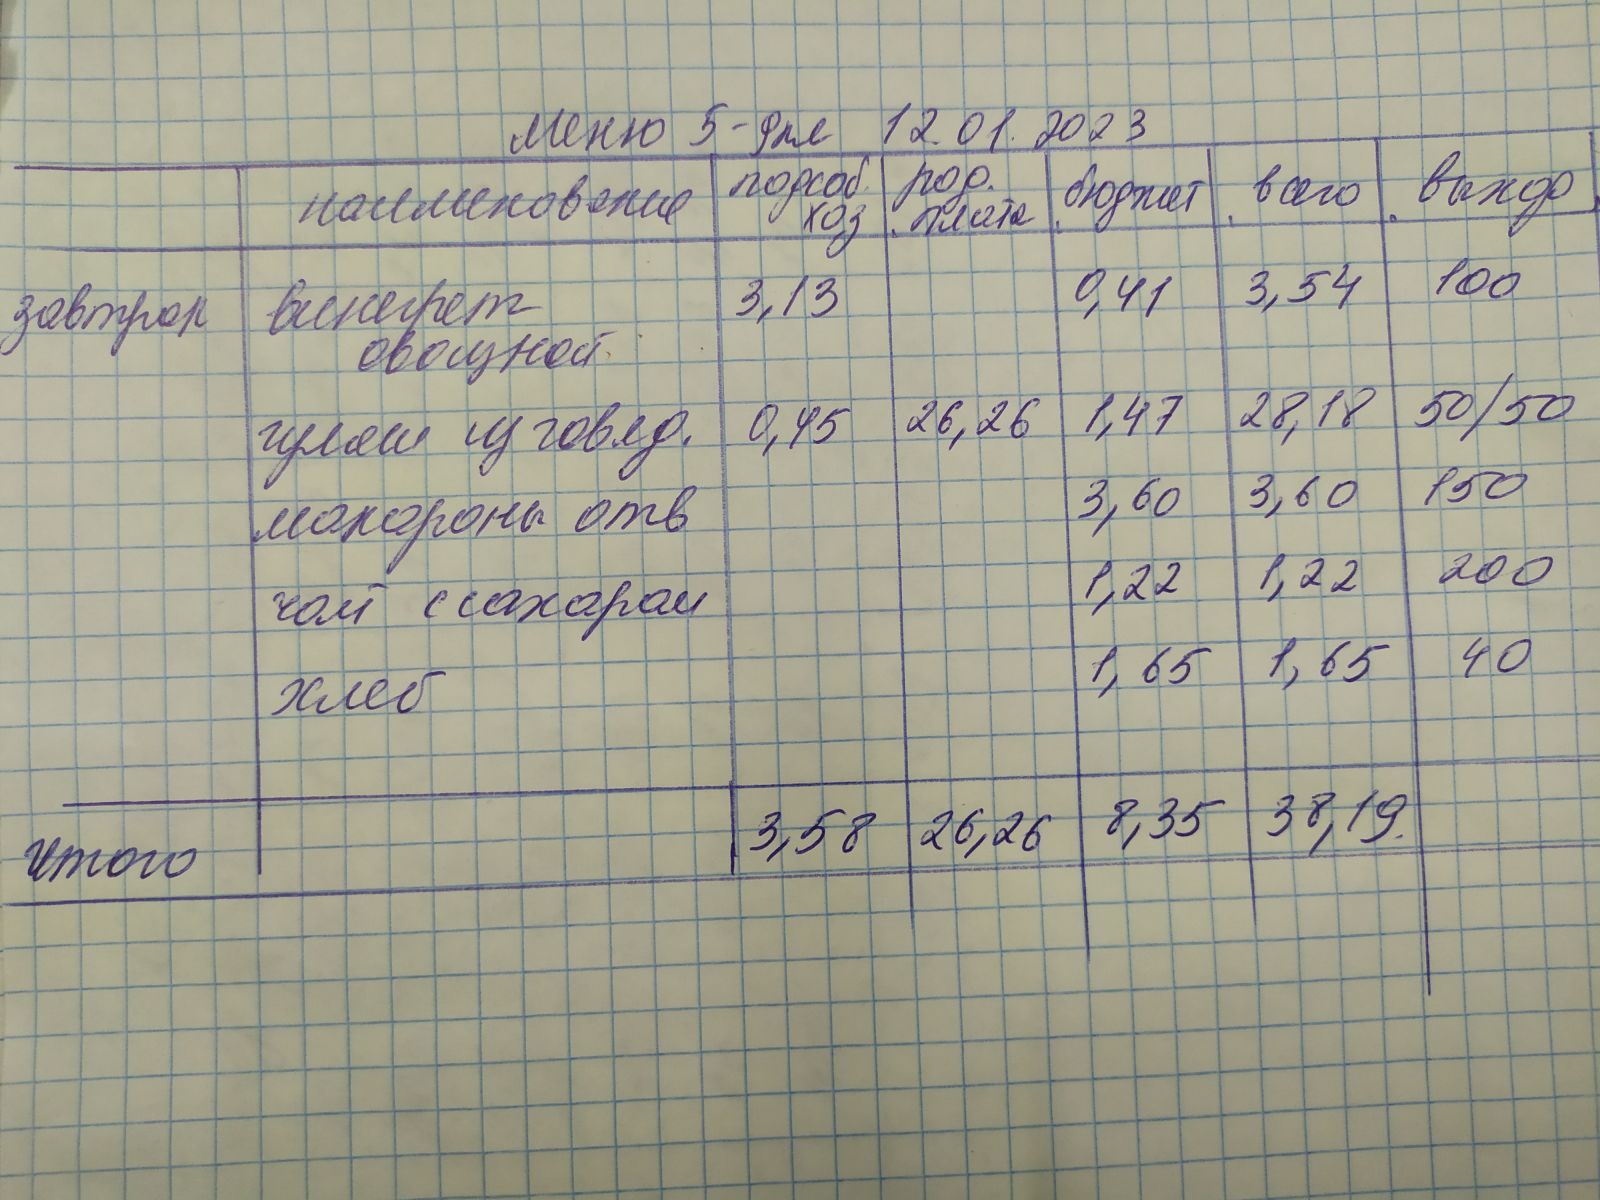 Меню 5-дня 12.01.2023
наименование подсоб. хоз род. плата бюджет всего выход
завтрак винегрет овощной 3,13 0,41 3,54 100
гуляш из говяд. 0,45 26,26 1,47 28,18 50/50
макароны отв 3,60 3,60 150
чай с сахаром 1,22 1,22 200
хлеб 1,65 1,65 40
итого 3,58 26,26 8,35 38,19.